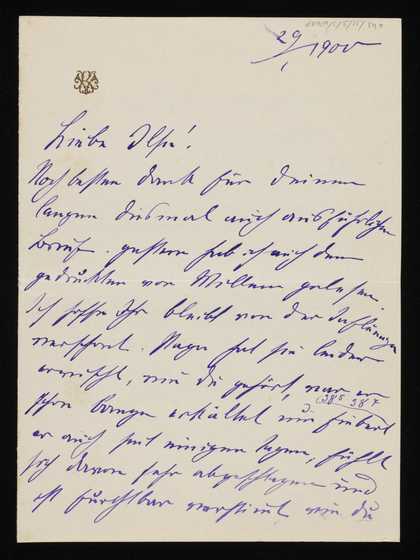 29/1 1900
Liebe Ilse!
Noch besten Dank für Deinen
langen diesmal auch ausführlichen
Brief. gestern hab ich auch den
gedruckten von Willem gelesen.
Ich hoffe Ihr bleibt von der Influenza
verschont. Papa hat sie leider
erwischt, wie Du gehört, war er
schon lange erkältet nun fiebert
(38⁵ 38⁷
er auch seit einigen Tagen, fühlt
sich davon sehr abgeschlagen und
ist furchtbar verstimmt wie Du